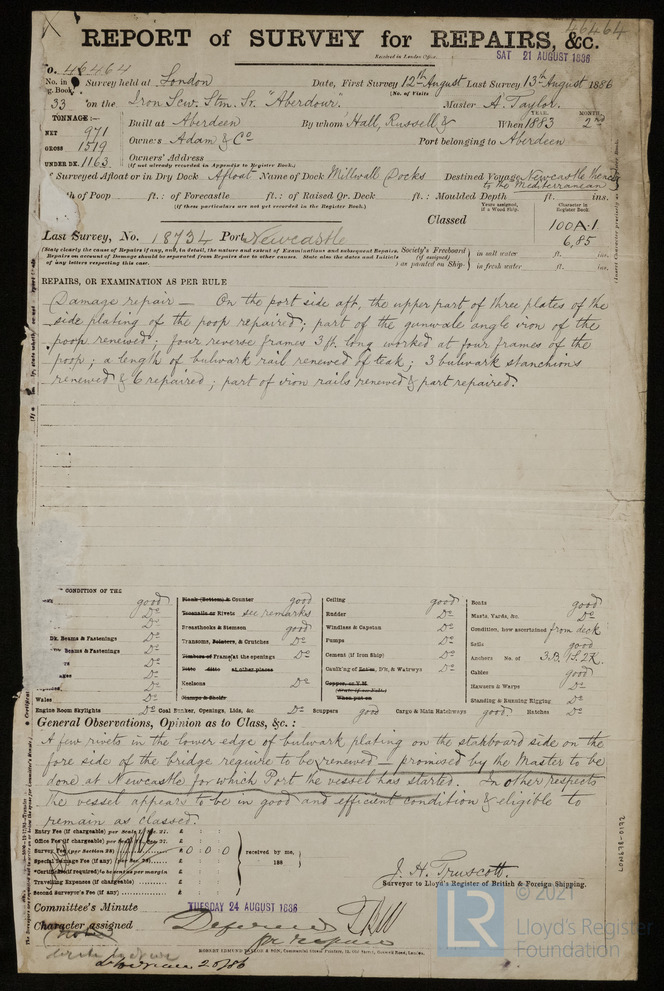 46464
REPORT of SURVEY for REPAIRS, &c.
Received in London Office,
SAT 21 AUGUST 1886
No. 46464
No. in Survey held at London Date, First Survey 12th August Last Survey 13th August 1886
g. Book. (No. of Visits
33 on the Iron Scw. Stm. Sr. "Aberdour." Master A. Taylor.
TONNAGE:— YEAR. MONTH.
NET 971 Built at Aberdeen By whom Hall, Russell & When 1883 2nd
GROSS 1519 Owners Adam & Co Port belonging to Aberdeen
UNDER DK. 1163 Owners' Address
(If not already recorded in Appendix to Register Book.)
If Surveyed Afloat or in Dry Dock Afloat Name of Dock Millwall Docks Destined Voyage Newcastle thence
to the Mediterranean
th of Poop ft.: of Forecastle ft.: of Raised Qr. Deck ft.: Moulded Depth ft. ins.
(If these particulars are not yet recorded in the Register Book.)
Years assigned, if a Wood Ship. Character in Register Book.
Classed 100A.1
6,85
Last Survey, No. 18734 Port Newcastle
(State clearly the cause of Repairs if any, and, in detail, the nature and extent of Examinations and subsequent Repairs.
Repairs on account of Damage should be separated from Repairs due to other causes. State also the dates and Initials
of any letters respecting this case.
Society's Freeboard (if assigned) as painted on Ship.
in salt water ft. ins.
in fresh water ft. ins.
REPAIRS, OR EXAMINATION AS PER RULE
Damage repair — On the port side aft, the upper part of three plates of the
side plating of the poop repaired; part of the gunwale angle iron of the
poop renewed; four reverse frames 3 ft long worked at four frames of the
poop; a length of bulwark rail renewed of teak; 3 bulwark stanchions
renewed & 6 repaired; part of iron rails renewed & part repaired.
CONDITION OF THE
good Plank (Bottom) & Counter good Ceiling good Boats good
Do Treenails or Rivets see remarks Rudder Do Masts, Yards, &c. Do
Do Breasthooks & Stemson good Windlass & Capstan Do Condition, how ascertained from deck
Dk. Beams & Fastenings Do Transoms, Pointers, & Crutches Do Pumps Do Sails good
Beams & Fastenings Do Timbers of Frame at the openings Do Cement (if Iron Ship) Do Anchors No. of 3.B. 1S. 2K.
Do Ditto ditto at other places Caulk'g of Dk's, & Watrwys Do Cables good
Do Keelsons Do Copper, or Y.M. Hawsers & Warps Do
Wales Do Stamps & Shelfs Standing & Running Rigging Do
Engine Room Skylights Do Coal Bunker, Openings, Lids, &c. Do Scuppers good Cargo & Main Hatchways good Hatches Do
General Observations, Opinion as to Class, &c.:
A few rivets in the lower edge of bulwark plating on the starboard side on the
fore side of the bridge require to be renewed — promised by the Master to be
done at Newcastle for which Port the vessel has started. In other respects
the vessel appears to be in good and efficient condition & eligible to
remain as classed.
Entry Fee (if chargeable) £ : :
Office Fee (if chargeable) £ : :
Survey Fee (per Section 28) £ 0 : 0 : 0
Special Damage Fee (if any) £ : :
*Certificate (if required) to be sent as per margin
Travelling Expenses (if chargeable) £ : :
Second Surveyor's Fee (if any) £ : :
received by me,
188
J. H. Truscott.
Surveyor to Lloyd's Register of British & Foreign Shipping.
Committee's Minute TUESDAY 24 AUGUST 1886
Character assigned Deferred
for repairs
LON678-0172
© 2021
LR
Lloyd's Register
Foundation